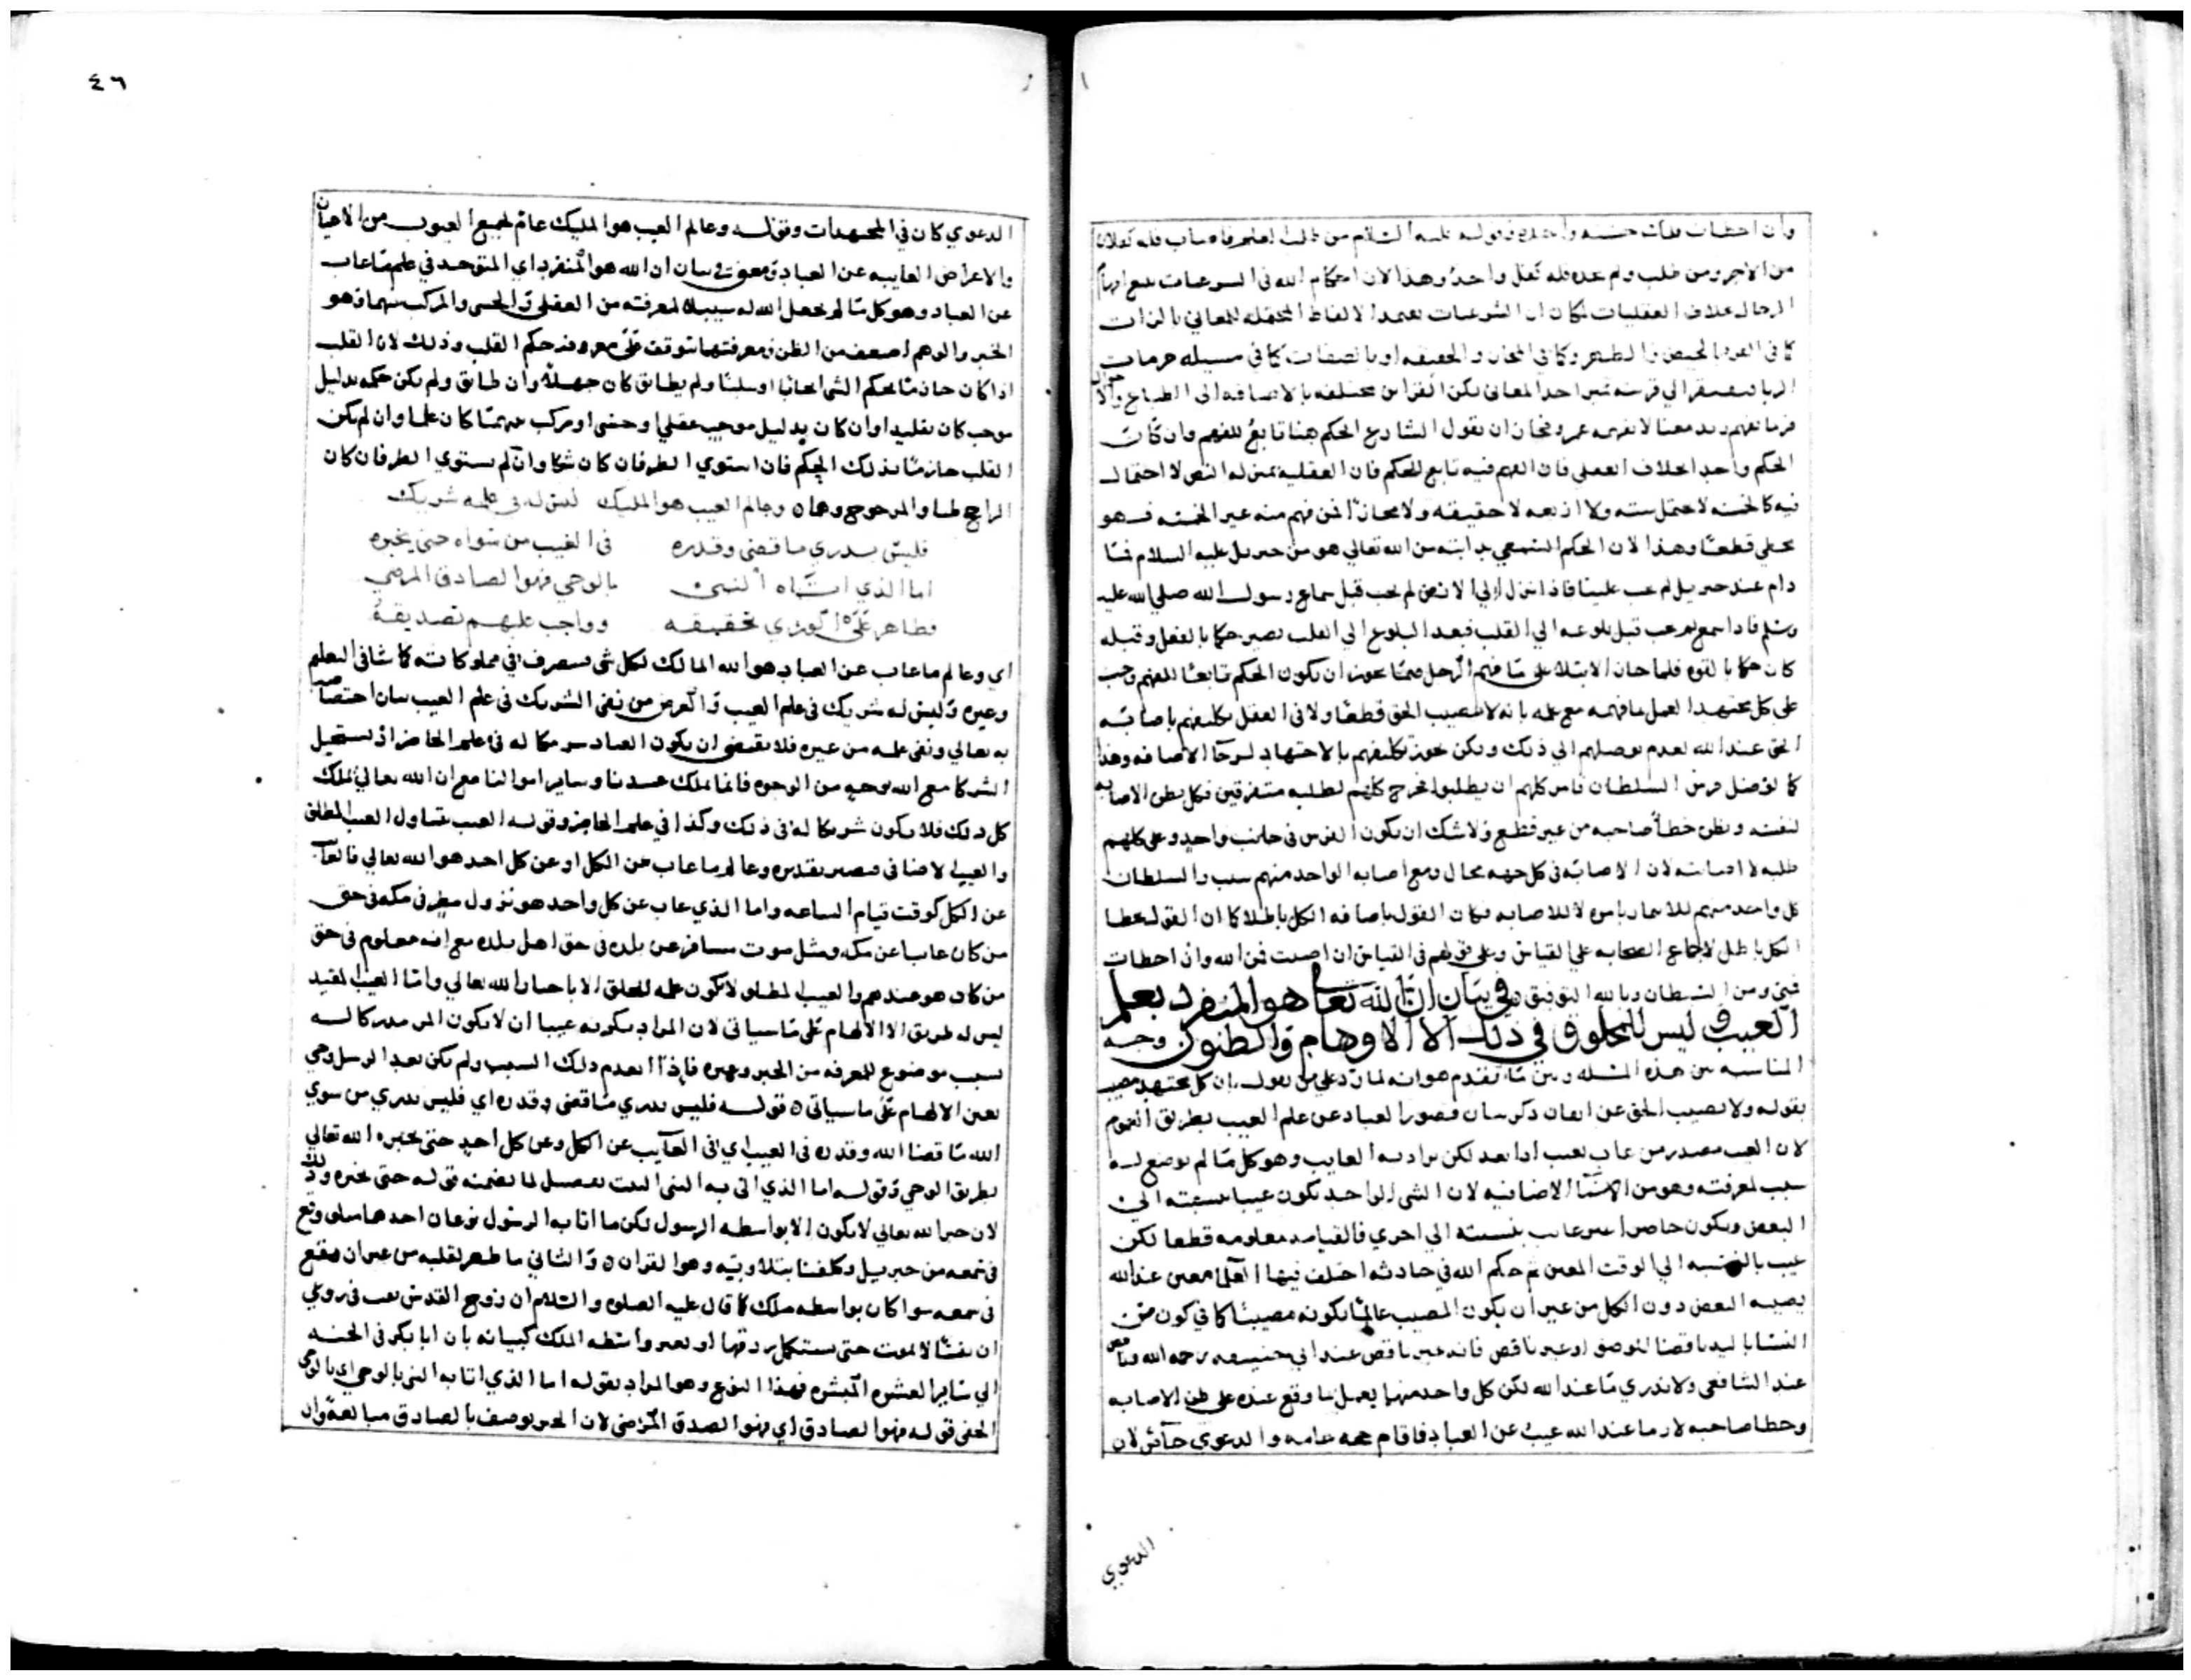 وان اخطات فلك حسنه واحده وقوله عليه السلام من طلب العلم فاصاب فله كفلان
من الاجر ومن طلب ولم يجده فله كفل واحد وهذا لان احكام الله في الشرعيات
الرجال بخلاف العقليات لمكان ان الشرعيات تعتمد الالفاظ المحتمله للمعاني بالذات
كما في القرء بالحيض والطهر وكما في المجاز والحقيقه او بالصفات كما في مسيله حرمات
الربا فيفتقر الي قرينه تميز احد المعاني لكن القراين مختلفه بالاضافه الي الطباع والاحوال
فربما يفهم زيد معنا لا يفهمه عمرو فجاز ان يقول الشارع الحكم هنا تابع للفهم وان كان
الحكم واحد بخلاف العقلي فان الفهم فيه تابع للحكم فان العقليه بمنزله النص لا احتمال
فيه كالخمسه لا تحتمل سته ولا اربعه لا حقيقه ولا مجازا فمن فهم منه غير الخمسه فهو
مخطي قطعا وهذا لان الحكم السمعي بدايته من الله تعالي هو من جبريل عليه السلام فما
دام عند جبريل لم يجب علينا فاذا نزل الي الارض لم يجب قبل سماع رسول الله صلي الله عليه
وسلم فاذا سمع لم يجب قبل بلوغه الي القلب فبعد البلوغ الي القلب يصير حكما بالفعل وقبله
كان حكما بالقوه فلما جاز الابتلا علي ما فهم الرجل صما يجوز ان يكون الحكم تابعا للفهم وجب
علي كل مجتهد العمل ما فهمه مع علمه بانه لا يصيب الحق قطعا ولا في العقل تكليفهم باصابه
الحق عند الله لعدم توصلهم الي ذلك ولكن يجوز تكليفهم بالاجتهاد لرجا الاصابه وهذا
كما لو ضل فرس السلطان فامر كلهم ان يطلبوا فخرج كلهم لطلبه متفرقين فكل يظن الاصابه
لنفسه ويظن خطأ صاحبه من غير قطع ولا شك ان يكون الفرس في جانب واحد وعلي كلهم
طلبه لا اصابته لان الاصابه في كل جهه محال ومع اصابه الواحد منهم سبب والسلطان
كل واحد منهم للايمار بامره لا للاصابه فكان القول باصابه الكل باطلا كما ان القول بخطا
الكل باطل لاجماع الصحابه علي القياس وعلي قولهم في القياس ان اصبت فمن الله وان اخطات
فمني ومن الشيطان وبالله التوفيق في بيان ان الله تعالي هو المنفرد بعلم
الغيب وليس للمخلوق في ذلك الا الاوهام والظنون وجه
المناسبه بين هذه المسله وبين ما تقدم هو انه لما رد علي من يقول بان كل مجتهد مصيب
بقوله ولا نصيب الحق عن ايقان ذكر بيان قصور العباد عن علم الغيب بطريق العموم
لان الغيب مصدر من غاب يغيب اذا بعد لكن يراد به الغايب وهو كل ما لم يوضع له
سبب لمعرفته وهو من الاسما الاضافيه لان الشي الواحد يكون غيبا بنسبته الي
البعض ويكون حاضرا غير غايب بنسبته الي اخري فالقيامه معلومه قطعا لكن
غيب بالنسبه الي الوقت المعين ثم حكم الله في حادثه اختلف فيها العلما معين عند الله
يصيبه البعض دون الكل من غير ان يكون المصيب عالما بكونه مصيبا كما في كون مس
النسا باليد ناقضا للوضو او غير ناقض فانه غير ناقض عند ابي حنيفه رحمه الله وناقض
عند الشافعي ولا ندري ما عند الله لكن كل واحد منهما يعمل بما وقع عنده علي ظن الاصابه
وخطا صاحبه لان ما عند الله غيب عن العباد فاقام حجه عامه والدعوي خاص لان
الدعوي
٤٦
الدعوي كان في المجتهدات وقوله وعالم الغيب هو المليك عام لجميع الغيوب من الاعيان
والاعراض الغايبه عن العباد ومعني في بيان ان الله هو المنفرد اي المتوحد في علم ما غاب
عن العباد وهو كل ما لم يجعل الله له سبيلا لمعرفته من العقلي والحسي والمركب منهما وهو
الخبر والوهم اضعف من الظن ومعرفتهما تتوقف علي معرفه حكم القلب وذلك لان القلب
اذا كان جازما بحكم الشي ايجابا او سلبا ولم يطابق كان جهلا وان طابق ولم يكن حكمه بدليل
موجب كان تقليدا وان كان بدليل موجب عقلي او حسي او مركب منهما كان علما وان لم يكن
القلب جازما بذلك الحكم فان استوي الطرفان كان شكا وان لم يستوي الطرفان كان
الراجح ظنا والمرجوح وهما ٥ وعالم الغيب هو المليك ليس له في علمه شريك
فليس يدري ما قضي وقدره في الغيب من سواه حتي يخبره
اما الذي اتاه النبي بالوحي فهو الصادق المرضي
فظاهر علي الوري تحقيقه وواجب عليهم تصديقه
اي وعالم ما غاب عن العباد هو الله المالك لكل شي يتصرف في مملوكاته كما شا في التعليم
وغيره وليس له شريك في علم الغيب والغرض من نفي الشريك في علم الغيب بيان اختصاصه
به تعالي ونفي علمه من غيره فلا يقتضي ان يكون العباد شريكا له في علم الحاضر اذ يستحيل
الشركا مع الله بوجه من الوجوه فانما نملك عبيدنا وساير اموالنا مع ان الله تعالي يملك
كل ذلك فلا يكون شريكا له في ذلك وكذا في علم الحاضر وقوله الغيب يتناول الغيب المطلق
والغيب الاضافي فيصير تقديره وعالم ما غاب عن الكل او عن كل احد هو الله تعالي فالغايب
عن الكل كوقت قيام الساعه واما الذي غاب عن كل واحد هو نزول مطر في مكه في حق
من كان غايبا عن مكه ومثل موت مسافر عن بلده في حق اهل بلده مع انه معلوم في حق
من كان هو عندهم والغيب المطلق لا يكون علمه للخلق الا باخبار الله تعالي واما الغيب المقيد
ليس له طريق الا الالهام علي ما سياتي لان المراد بكونه غيبا ان لا يكون المر مدركا له
بسبب موضوع للمعرفه من الخبر وغيره فاذا انعدم ذلك السبب ولم يكن بعد الرسل وحي
تعين الالهام علي ما سياتي ٥ قوله فليس يدري ما قضي وقدره اي فليس يدري من سوي
الله ما قضا الله وقدره في الغيب اي في الغايب عن الكل وعن كل احد حتي يخبره الله تعالي
بطريق الوحي وقوله اما الذي اتي به النبي البيت تفصيل لما تضمنه قوله حتي يخبره وذلك
لان خبر الله تعالي لا يكون الا بواسطه الرسول لكن ما اتا به الرسول نوعان احدهما متلو وقع
في سمعه من جبريل وكلفنا بتلاوته وهو القران ٥ والثاني ما ظهر لقلبه من غير ان يقع
في سمعه سوا كان بواسطه ملك كما قال عليه الصلوه والسلام ان روح القدس نفث في روعي
ان نفسا لا تموت حتي تستكمل رزقها او بغير واسطه الملك كبيانه بان ابا بكر في الجنه
الي ساير العشره المبشره فهذا النوع وهو المراد بقوله اما الذي اتا به النبي بالوحي اي بالوحي
الخفي قوله فهو الصادق اي فهو الصدق المرضي لان الخبر يوصف بالصادق مبالغه وان